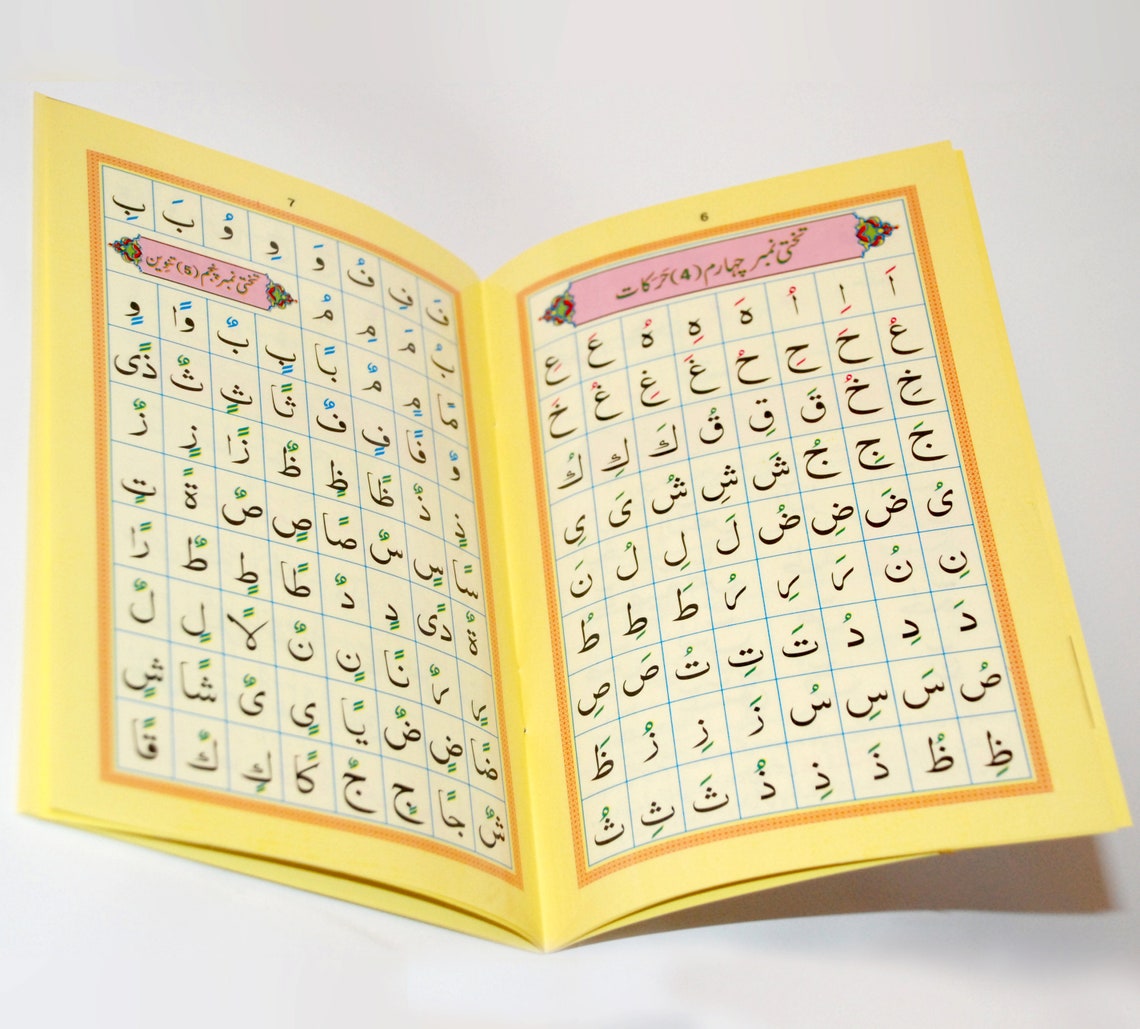 6
تختی نمبر چہارم (4) حَرَکات
اَ اِ اُ هَ هِ هُ عَ عِ
عُ حَ حِ حُ غَ غِ غُ خَ
خِ خُ قَ قِ قُ كَ كِ كُ
جَ جِ جُ شَ شِ شُ یَ یِ
یُ ضَ ضِ ضُ لَ لِ لُ نَ
نِ نُ رَ رِ رُ طَ طِ طُ
دَ دِ دُ تَ تِ تُ صَ صِ
صُ سَ سِ سُ زَ زِ زُ ظَ
ظِ ظُ ذَ ذِ ذُ ثَ ثِ ثُ
7
فَ فِ فُ وَ وِ وُ بَ بِ
بُ مَ مِ مُ
تختی نمبر پنجم (5) تنوین
مًا مٍ مٌ بًا بٍ بٌ وًا وٍ
وٌ فًا فٍ فٌ ثًا ثٍ ثٌ ذًى
ذٍ ذٌ ظًا ظٍ ظٌ زًا زٍ زٌ
سًا سٍ سٌ صًا صٍ صٌ ةً تٍ
ةٌ دًى دٍ دٌ طًا طٍ طٌ رًا
رٍ رٌ نًا نٍ نٌ لًا لٍ لٌ
ضًا ضٍ ضٌ یًا یٍ یٌ شًا شٍ
شٌ جًا جٍ جٌ كًا كٍ كٌ قًا